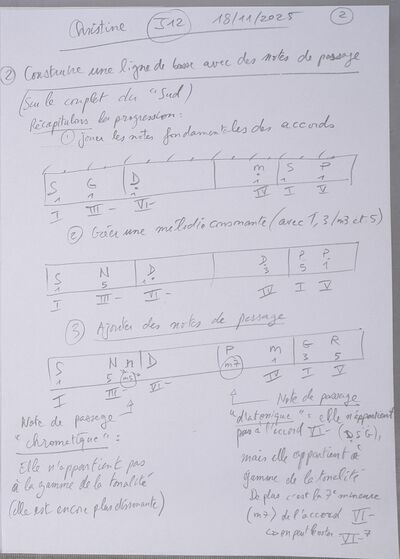 Christine J12 18/11/2025 2
2 Construire une ligne de basse avec des notes de passage
(Sur le couplet du "Sud")
Récapitulons la progression :
1 Jouer les notes fondamentales des accords
S G D m S P
1 1 1 1 1 1
I III- VI- IV I V
2 Créer une mélodie consonante (avec T, 3/m3 et 5)
S N D D P P
1 5 1 3 5 1
I III- VI- IV I V
3 Ajouter des notes de passage
S N n D P m G R
1 5 b5 1 m7 1 3 5
I III- VI- IV I V
Note de passage
"chromatique" :
Elle n'appartient pas
à la gamme de la tonalité
(elle est encore plus dissonante)
Note de passage
"diatonique" = elle n'appartient
pas à l'accord VI- (DSG),
mais elle appartient à
gamme de la tonalité
De plus c'est la 7e mineure
(m7) de l'accord VI-
↳ on peut VI-7